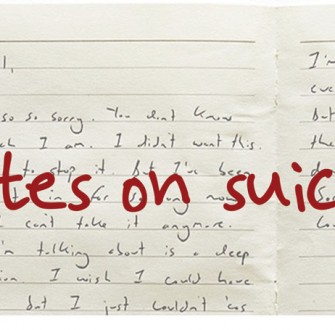 l,
so so sorry. You don't know
ch I am. I didn't want this.
to stop it. But I've been
tes on suic
in for so long now
I can't take it anymore.
'm talking about is a deep
ion. I wish I could have
but I just couldn't 'cos
I'm
but
the